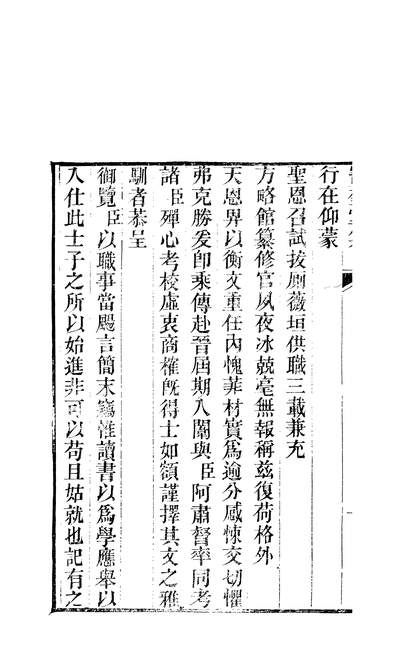 行在仰蒙
聖恩召試拔廁薇垣供職三載兼充
方略館纂修官夙夜冰兢毫無報稱茲復荷格外
天恩畀以衡文重任內愧菲材實爲逾分感悚交切懼
弗克勝爰卽乘傳赴晉屆期入闈與臣阿肅督率同考
諸臣殫心考校虛衷商榷旣得士如額謹擇其文之雅
馴者恭呈
御覽臣以職事當颺言簡末竊惟讀書以爲學應舉以
入仕此士子之所以始進非可以苟且姑就也記有之